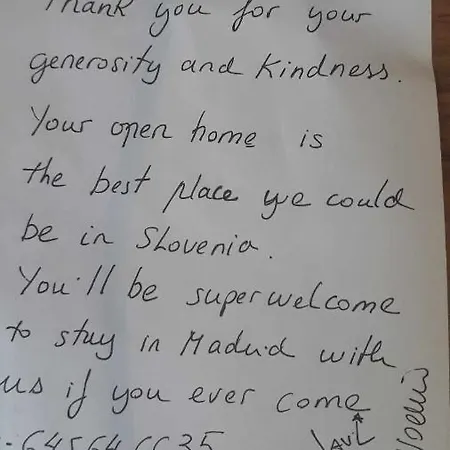 Thank you for your
generosity and kindness.
Your open home is
the best place we could
be in Slovenia.
You'll be superwelcome
to stay in Madrid with
us if you ever come